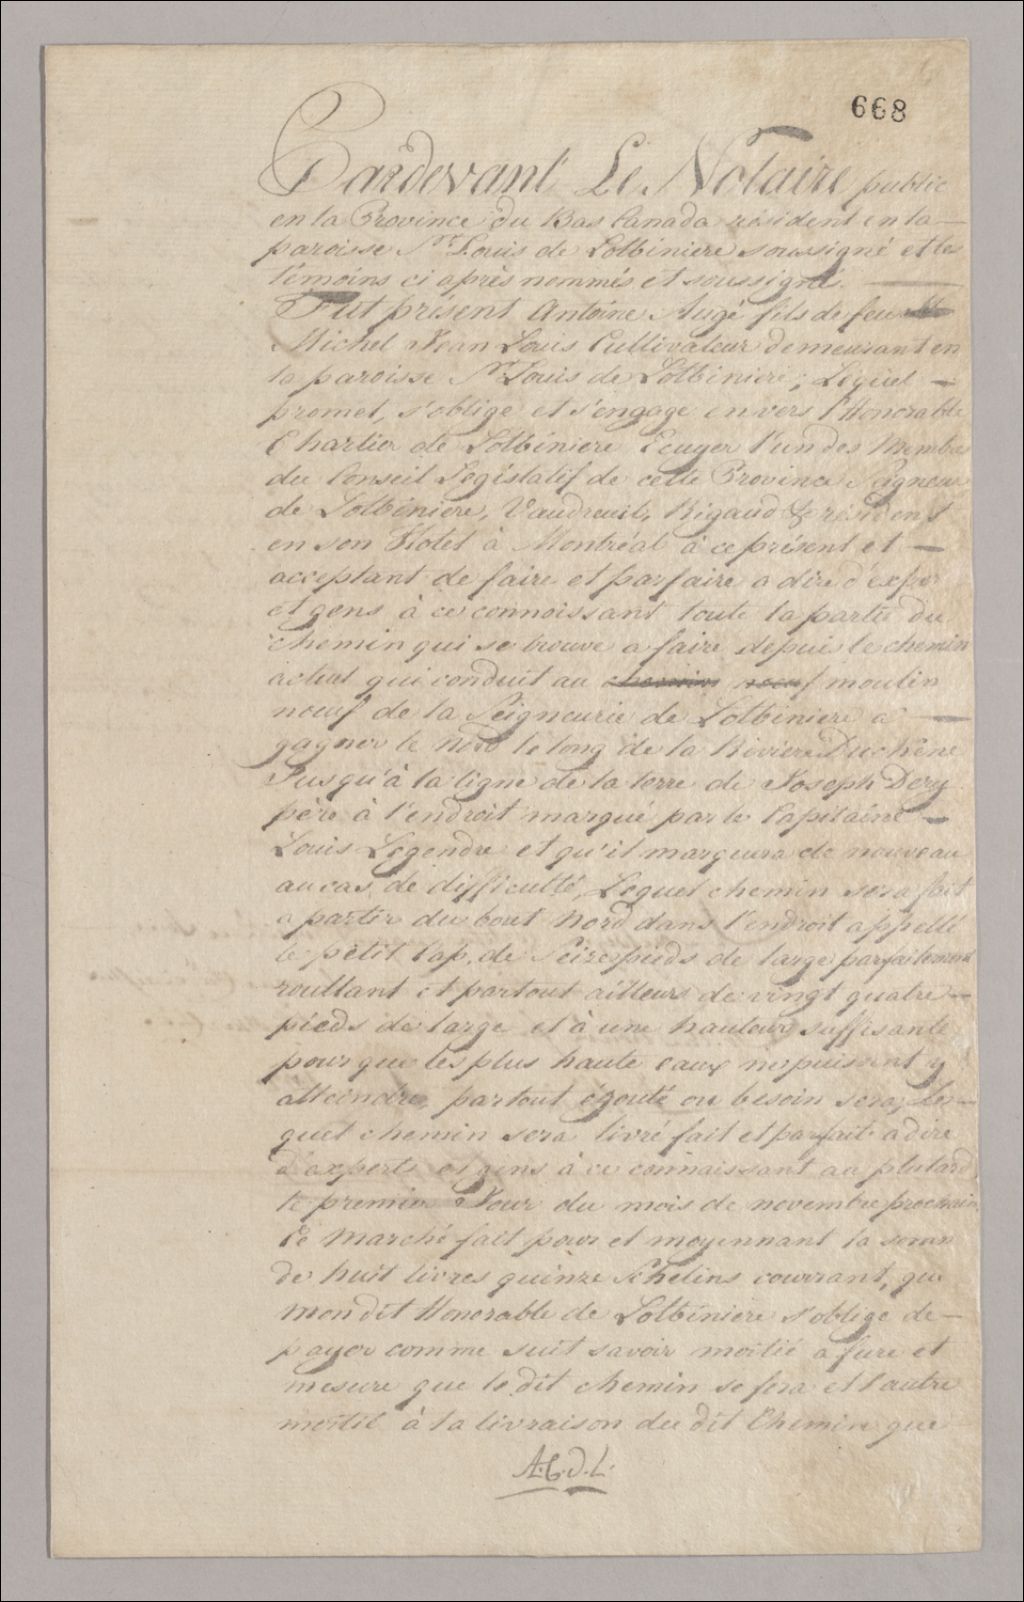 668
Pardevant Le Notaire public
en la Province du Bas Canada résident en la
paroisse St Louis de Lotbiniere soussigné et les
témoins ci après nommés et soussigné.
Fut présent Antoine Augé fils de feu
Michel Jean Louis Cultivateur demeurant en
la paroisse St Louis de Lotbiniere; Lequel
promet, s'oblige et s'engage envers l'Honorable
Chartier de Lotbiniere Ecuyer l'un des Membres
du Conseil Législatif de cette Province Seigneur
de Lotbiniere, Vaudreuil, Rigaud & résident
en son Hotel à Montréal à ce présent et
acceptant de faire et parfaire a dire d'expert
et gens à ce connoissant toute la partie du
chemin qui se trouve a faire depuis le chemin
actuel qui conduit au chemin noeuf moulin
noeuf de la Seigneurie de Lotbiniere a
gagner le Nord le long de la Riviere Duchêne
Jusqu'à la ligne de la terre de Joseph Dery
père à l'endroit marqué par le Capitaine
Louis Légendre et qu'il marquera de nouveau
au cas de difficulté, Lequel chemin sera fait
a partir du bout Nord dans l'endroit appellé
le petit Cap, de Seize pieds de large parfaitement
roullant et partout ailleurs de vingt quatre
pieds de large et à une hauteur suffisante
pour que les plus haute eaux ne puissent y
atteindre, partout égouté ou besoin sera; Le
quel chemin sera livré fait et parfait a dire
d'experts et gens à ce connaissant au plutard
le premier Jour du mois de novembre prochain,
Ce Marché fait pour et moyennant la somme
de huit livres quinze Schelins courrant, que
mondit Honorable de Lotbiniere s'oblige de
payer comme suit savoir moitié a fure et
mesure que le dit chemin se fera et l'autre
moitié à la livraison du dit Chemin que
A.C.D.L.